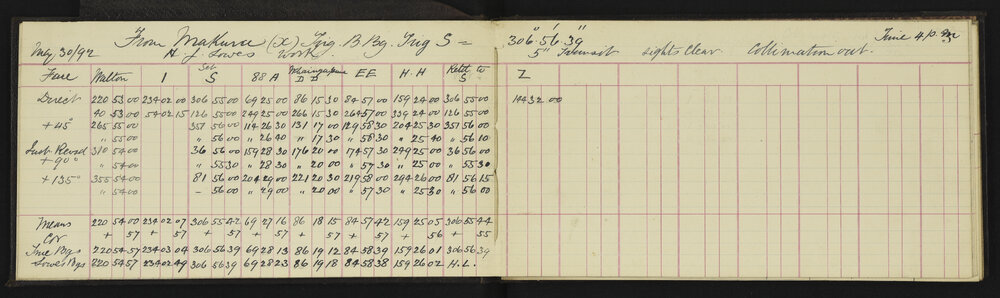 May 30/92 From Makurae (X) Trig. B. Bg. Trig S = 306° 56' 39" Time 4 P.M.
H. J. Lowe's Work 5" Transit sights clear Collimation out.
Face Walton I Set S 88 A Whaingapuna DD EE H.H Retd to S Z
Direct 220 53 00 234 02 00 306 55 00 69 25 00 86 15 30 84 57 00 159 24 00 306 55 00 144 32 00
40 53 00 54 02 15 126 55 00 249 25 00 266 15 30 264 57 00 339 24 00 126 55 00
+45° 265 55 00 351 56 00 114 26 30 131 17 00 129 58 30 204 25 30 351 56 00
" 55 00 " 56 00 " 26 40 " 17 30 " 58 30 " 25 40 " 56 10
Inst. Revsd 310 54 00 36 56 00 159 28 30 176 20 00 174 57 30 249 25 00 36 56 00
+90° " 54 00 " 55 30 " 28 30 " 20 00 " 57 30 " 25 00 " 55 30
+135° 355 54 00 81 56 00 204 29 00 221 20 30 219 58 00 294 26 00 81 56 15
" 54 00 – 56 00 " 29 00 " 20 00 " 57 30 " 25 30 " 56 00
Means 220 54 00 234 02 07 306 55 42 69 27 16 86 18 15 84 57 42 159 25 05 306 55 44
Cor + 57 + 57 + 57 + 57 + 57 + 57 + 56 + 55
True Bgs 220 54 57 234 03 04 306 56 39 69 28 13 86 19 12 84 58 39 159 26 01 306 56 39
Lowes Bgs 220 54 57 234 02 49 306 56 39 69 28 23 86 19 18 84 58 38 159 26 02 H.L.